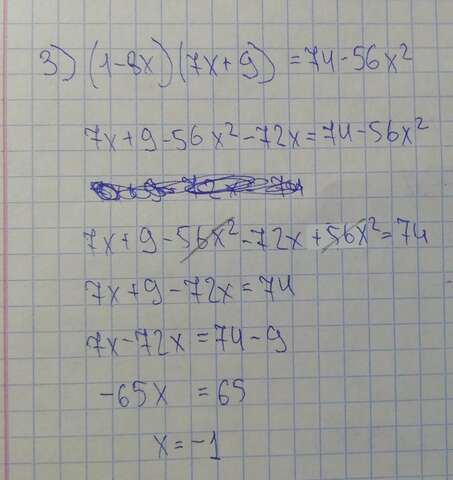 3) (1-8x)(7x+9) = 74-56x²
7x+9-56x²-72x=74-56x²
7x+9-56x²-72x+56x²=74
7x+9-72x=74
7x-72x=74-9
-65x =65
x=-1